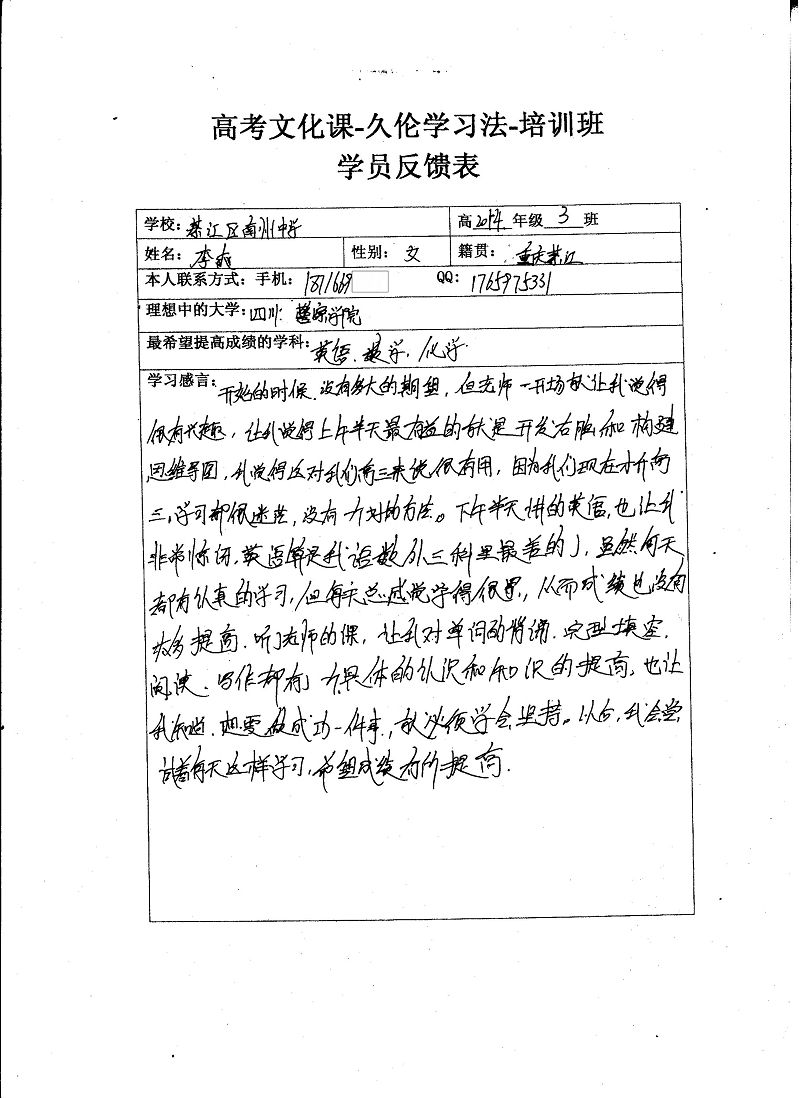 高考文化课-久伦学习法-培训班
学员反馈表
学校：綦江区南州中学 高2014年级 3 班
姓名：李 性别：女 籍贯：重庆綦江
本人联系方式：手机：1871669 QQ：1765975331
理想中的大学：四川警察学院
最希望提高成绩的学科：英语、数学、化学
学习感言：开始的时候，没有多大的期望，但老师一开场就让我觉得
很有兴趣，让我觉得上午半天最有益的就是开发右脑和构建
思维导图，我觉得这对我们高三来说很有用，因为我们现在才升高
三，学习都很迷茫，没有方对的方法。下午半天讲的英语，也让我
非常惊讶，英语算是我语数外三科里最差的了，虽然每天
都有认真的学习，但每天总感觉学得很累，从而成绩也没有
太多提高，听了老师的课，让我对单词的背诵，完型填空，
阅读、写作都有了具体的认识和知识的提高，也让
我知道，想要做成功一件事，就必须学会坚持。以后，我会尝
试着每天这样学习，希望成绩有所提高.